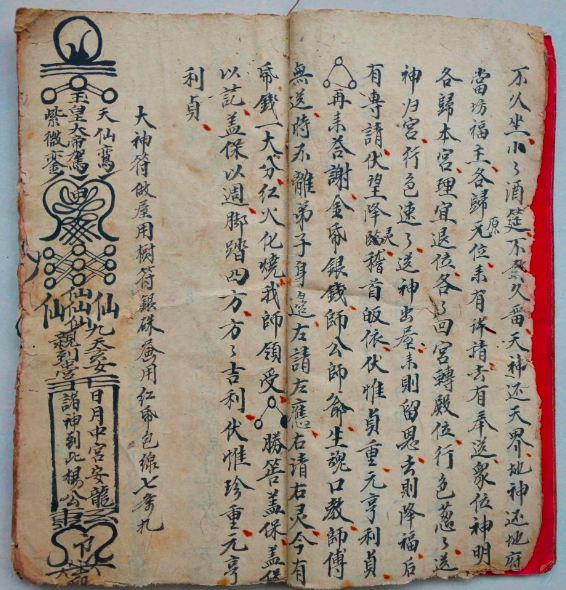 不久坐小〻酒筵不久畄天神还天界地神还地府
當坊福主各歸元位来有許請去有奉送衆位神明
原
各歸本宫理宜退位各〻回宫轉殿位行色葱〻送
神归宫行色速〻送神出屋来則留恩去則降福后
有專請伏望降臨稽首皈依伏惟貞重元亨利貞
灵
再来答謝金帋銀錢師公師爺生魂口教師傅
無送時不離弟子身边左請左應右請右灵今有
帋錢一大分红火化燒我師領受勝筶盖保盖保
以訖盖保以週脚踏四方方〻吉利伏惟珍重元亨
利貞
大神符做屋用樹符銀硃屋用红帋色線七
天仙鸞
玉皇大帝駕
紫微鑾
仙仙仙
九天安
親到宫
日月中宫安龍
諸神到此楊公